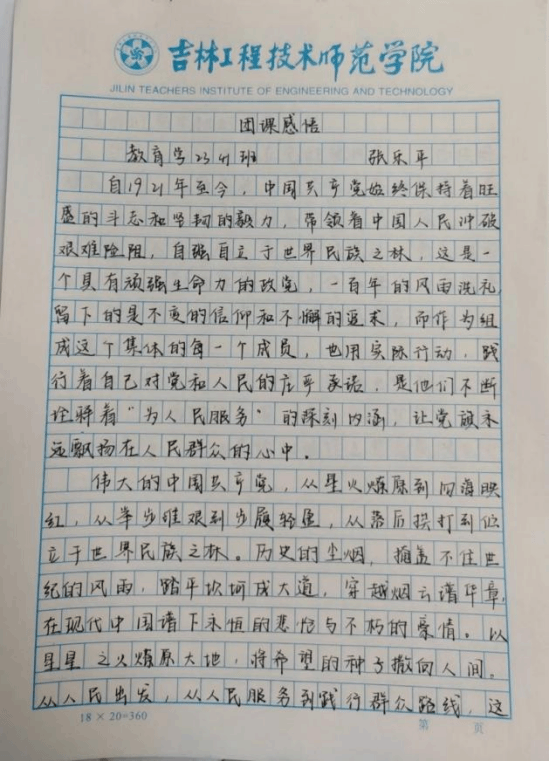 吉林工程技术师范学院
JILIN TEACHERS INSTITUTE OF ENGINEERING AND TECHNOLOGY
团课感悟
教育学2341班 张乐平
自1921年至今,中国共产党始终保持着旺
盛的斗志和坚韧的毅力,带领着中国人民冲破
艰难险阻,自强自立于世界民族之林,这是一
个具有顽强生命力的政党,一百年的风雨洗礼
留下的是不变的信仰和不懈的追求,而作为组
成这个集体的每一个成员,也用实际行动,践
行着自己对党和人民的庄严承诺,是他们不断
诠释着“为人民服务”的深刻内涵,让党旗永
远飘扬在人民群众的心中。
伟大的中国共产党,从星火燎原到四海映
红,从举步维艰到步履轻盈,从落后挨打到屹
立于世界民族之林。历史的尘烟,掩盖不住世
纪的风雨,踏平坎坷成大道,穿越烟云谱华章,
在现代中国谱下永恒的悲怆与不朽的豪情。以
星星之火燎原大地,将希望的种子撒向人间。
从人民出发,从人民服务到践行群众路线,这
18×20=360 第 页